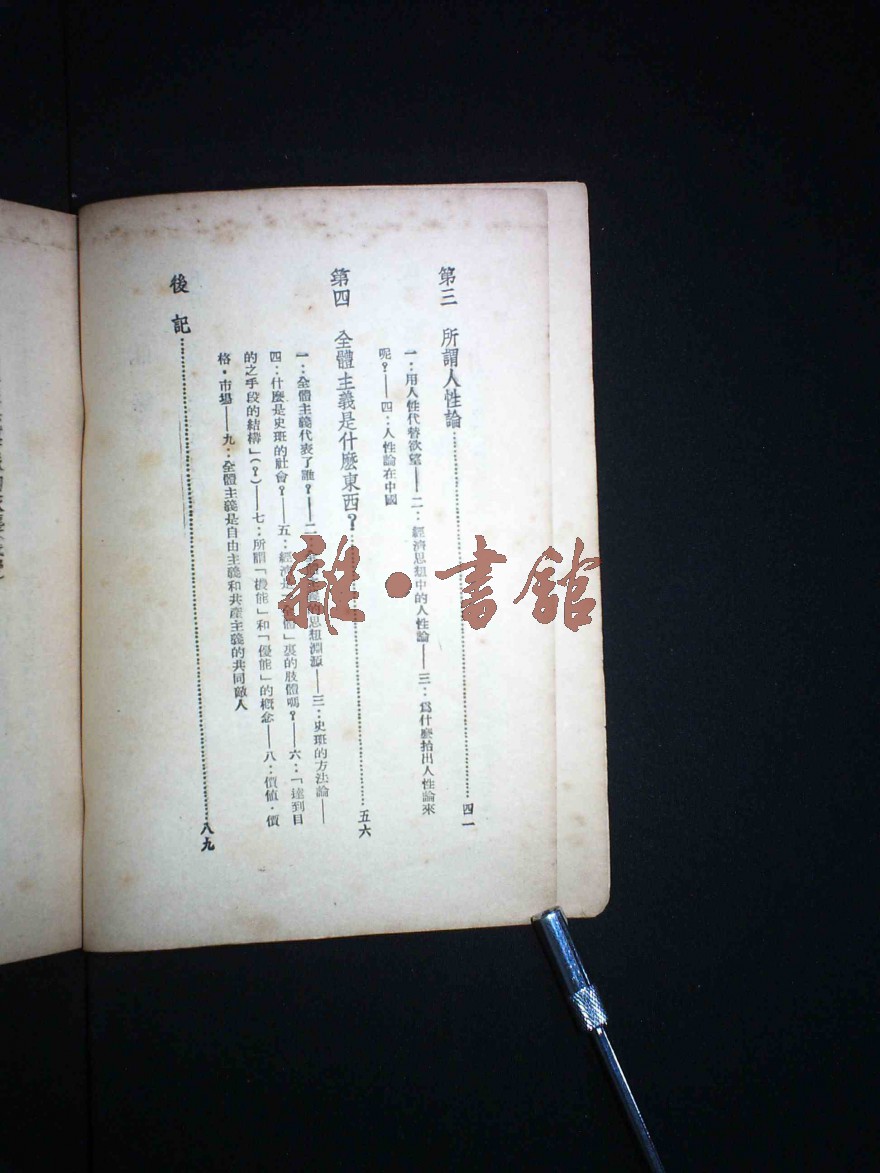 第三　所謂人性論……四一
一：用人性代替欲望——二：經濟思想中的人性論——三：爲什麼抬出人性論來
呢？——四：人性論在中國
第四　全體主義是什麼東西？……五六
一：全體主義代表了誰？——二：的思想淵源——三：史班的方法論——
四：什麼是史班的社會？——五：經濟是「全體」裏的肢體嗎？——六：「達到目
的之手段的結構」（？）——七：所謂「機能」和「優能」的概念——八：價值・價
格・市場——九：全體主義是自由主義和共產主義的共同敵人
後記……八九
雜・書館